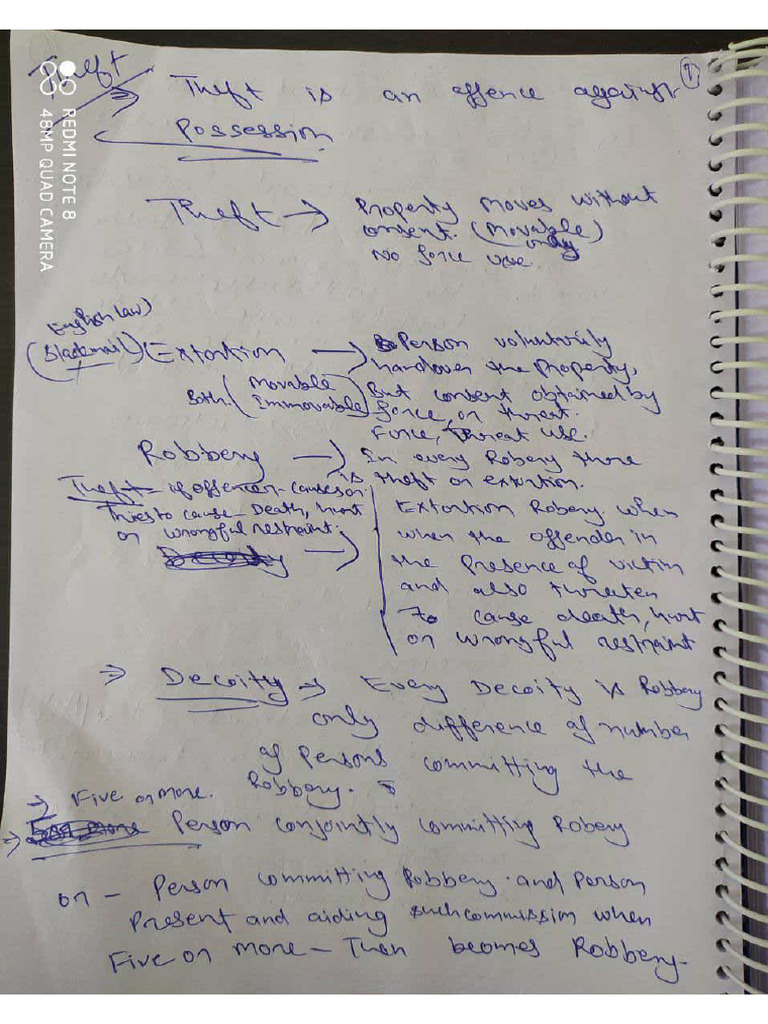 Theft
①
⇒ Theft is an offence against
Possession
REDMI NOTE 8
48MP QUAD CAMERA
Theft → Property moves without
consent. (Movable)
only
No force use.
English law)
(Blackmail) Extortion → Person voluntarily
handover the Property,
Both (Movable Immovable) But consent obtained by
force, or threat.
Force, Threat use.
Robbery → In every Robery there
is theft or extortion.
Theft - if offencer - causes or
Tries to cause - Death, hurt
or wrongful restraint.
Decoity →
Extortion Robery. when
when the offender in
the presence of victim
and also threaten
To cause death, hurt
or wrongful restraint
⇒ Decoity → Every Decoity is Robbery
only difference of number
of Persons committing the
Robbery.
→ Five or more.
⇒ Person conjointly committing Robery
or - Person committing Robbery. and Person
Present and aiding such commission when
Five or more - Then becomes Robbery.